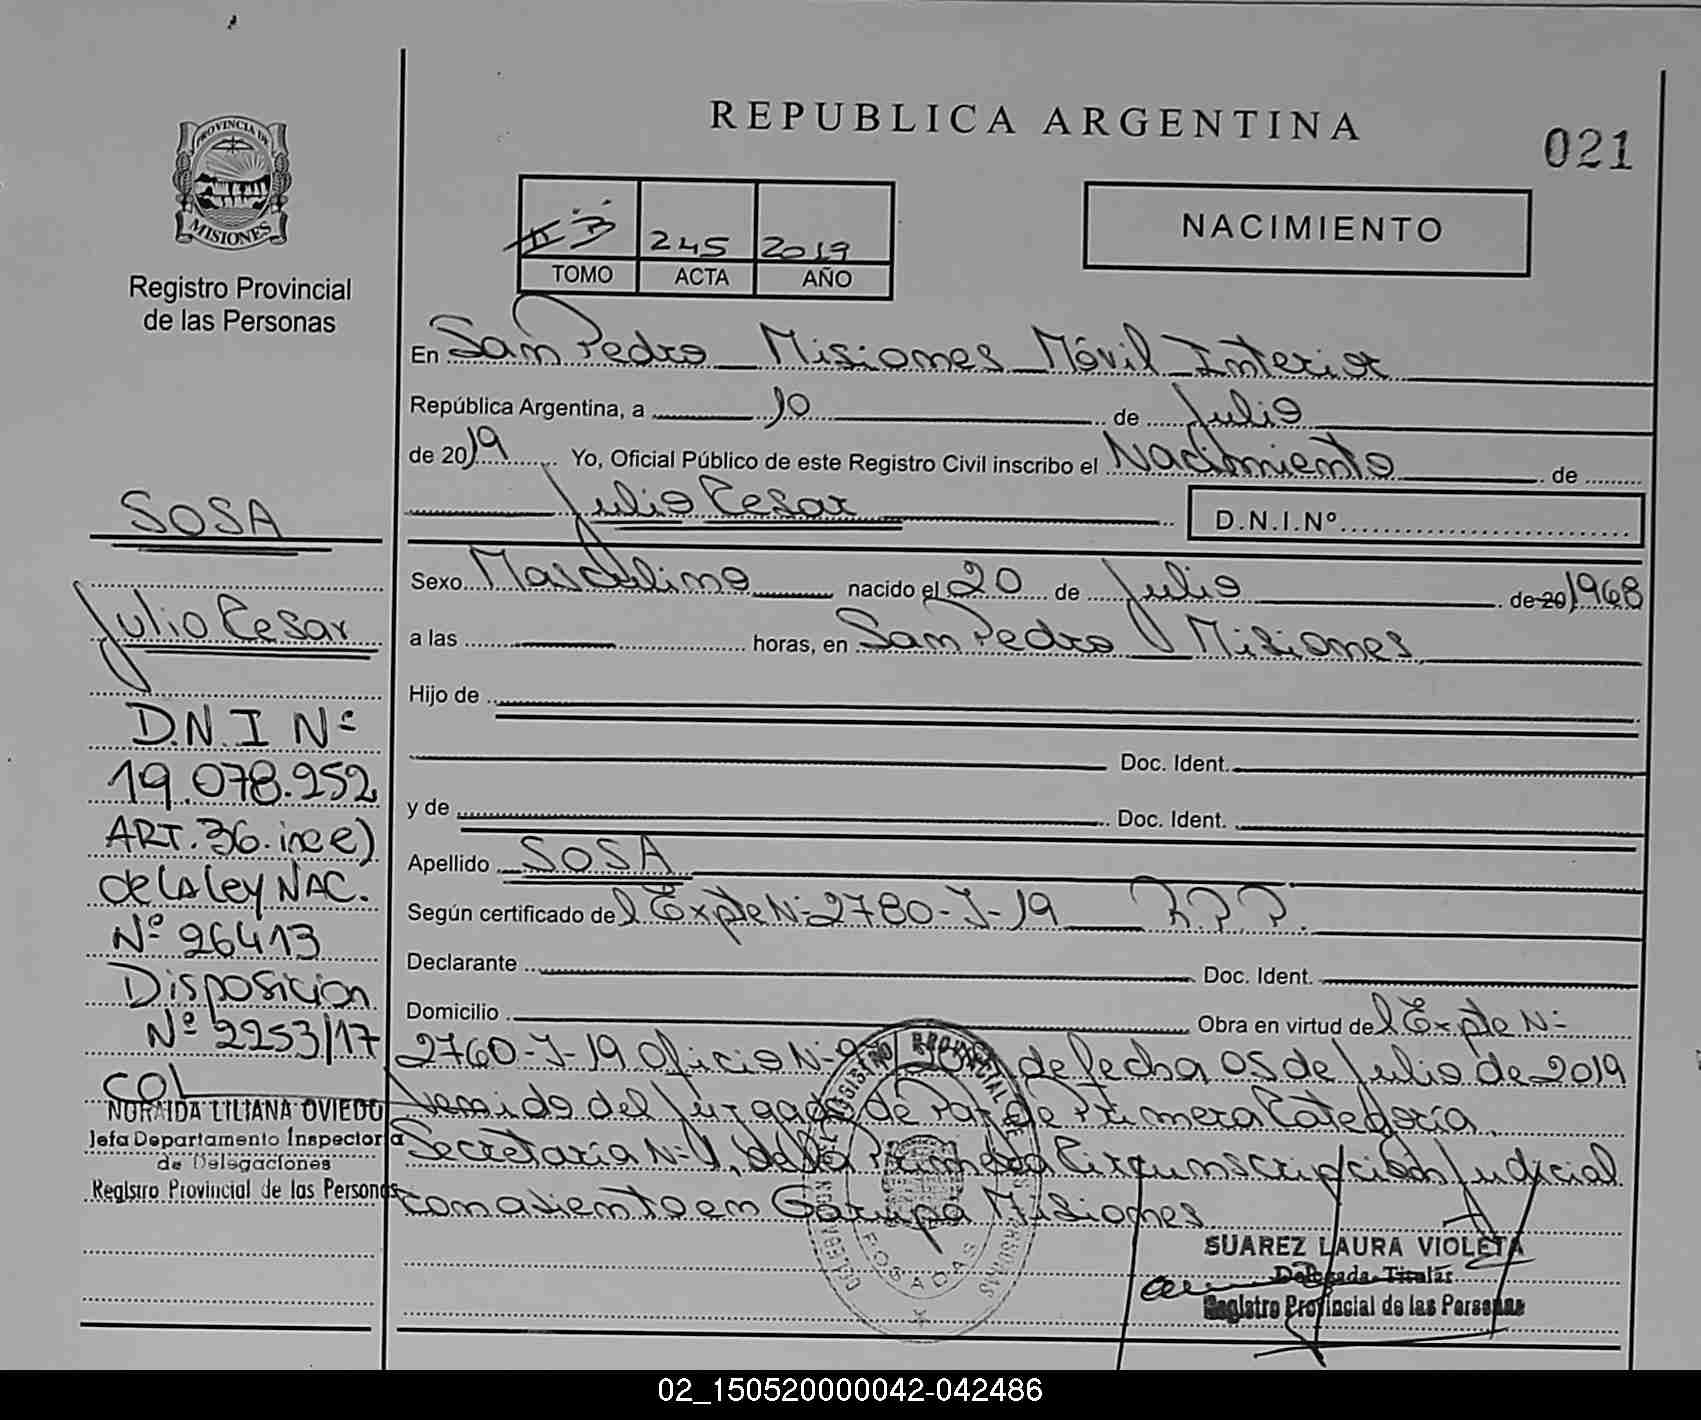 REPUBLICA ARGENTINA
021
PROVINCIA DE
MISIONES
Registro Provincial
de las Personas
245 2019
TOMO ACTA AÑO
NACIMIENTO
En San Pedro Misiones Móvil Interior
República Argentina, a 10 de Julio
de 2019 Yo, Oficial Público de este Registro Civil inscribo el Nacimiento de
Julio Cesar D.N.I.Nº
Sexo Masculino nacido el 20 de Julio de 20 1968
a las horas, en San Pedro Misiones
Hijo de
Doc. Ident.
y de Doc. Ident.
Apellido SOSA
Según certificado del Expte Nº 2780-J-19 R.P.P.
Declarante Doc. Ident.
Domicilio Obra en virtud del Expte Nº
2760-J-19 Oficio Nº de fecha 05 de Julio de 2019
venido del Juzgado de Paz de Primera Categoría
Secretaría Nº 1, de la Primera Circunscripción Judicial
con asiento en Garupa Misiones
SOSA
Julio Cesar
D.N.I Nº
19.078.252
ART. 36. inc e)
de la Ley NAC.
Nº 26413
Disposicion
Nº 2253/17
COL
NORAIDA LILIANA OVIEDO
Jefa Departamento Inspectoria
de Delegaciones
Registro Provincial de las Personas
POSADAS
SUAREZ LAURA VIOLETA
Delegada Titular
Registro Provincial de las Personas
02_150520000042-042486